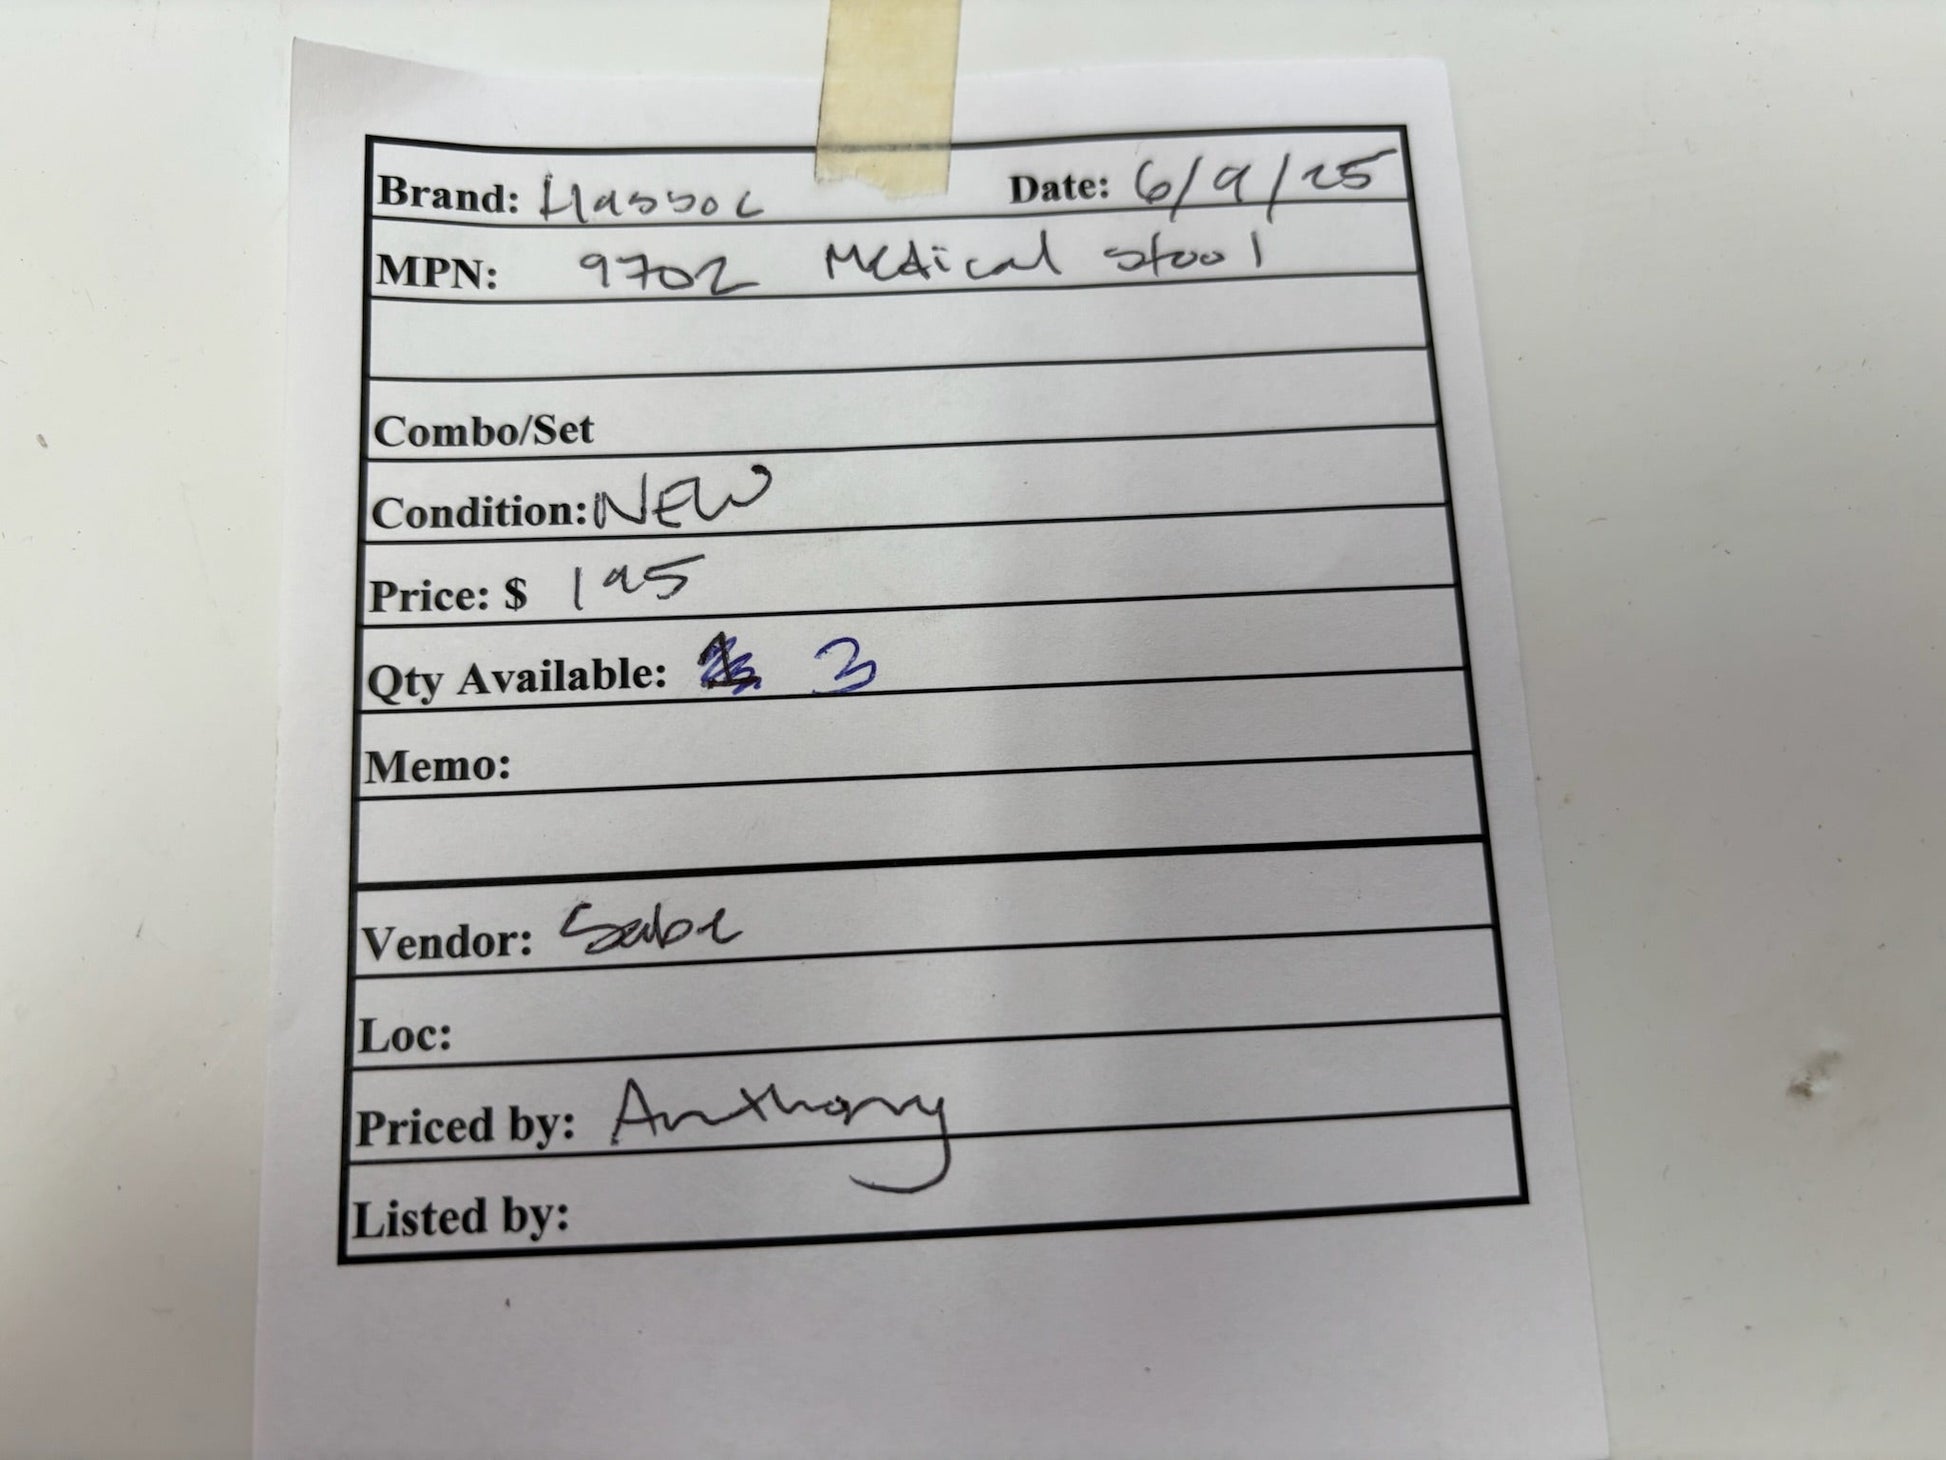 Brand: Hassoc Date: 6/9/25
MPN: 9702 Medical stool
Combo/Set
Condition: NEW
Price: $ 195
Qty Available: 3
Memo:
Vendor: Sabe
Loc:
Priced by: Anthony
Listed by: